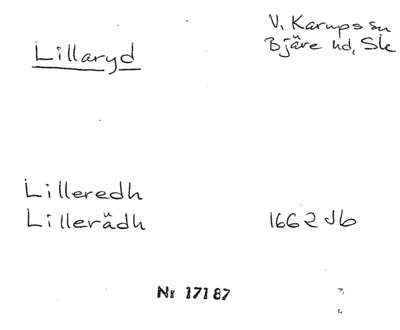 V. Karups sn
Bjäre hd, Sk
Lillaryd
Lilleredh
Lillerädh 1662 Jb
Nr 17187